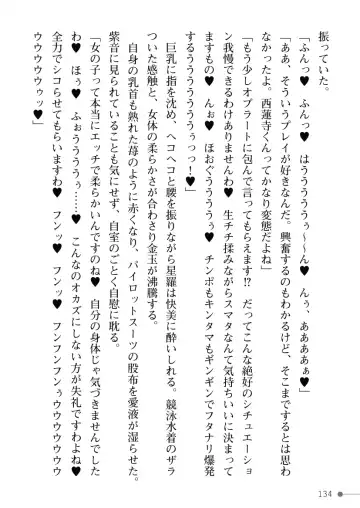 振っていた。
「ふんっ♥　ふんっ♥　はうううううぅ〜ん♥　んぅ、ああああぁ♥」
「ああ、そういうプレイが好きなんだ。興奮するのもわかるけど、そこまでするとは思わ
なかったよ。西蓮寺くんってかなり変態だよね」
「もう少しオブラートに包んで言ってもらえます!?　だってこんな絶好のシチュエーショ
ン我慢できるわけありませんわ♥　生チチ揉みながらスマタなんて気持ちいいに決まって
ますもの♥　んぉ♥　ほおぐうううう♥　チンポもキンタマもギンギンでフタナリ爆発
するうううううぅぅっっ！♥」
　巨乳に指を沈め、ヘコヘコと腰を振りながら星羅は快美に酔いしれる。競泳水着のザラ
ついた感触と、女体の柔らかさが合わさり金玉が沸騰する。
　自身の乳首も熟れた苺のように赤くなり、パイロットスーツの股布を愛液が濡らす。
紫音に見られていることも気にせず、自室のごとく自慰に耽る。
「女の子って本当にエッチで柔らかいんですのね♥　自分の身体じゃ気づきませんでした
わ♥　ほぅ♥　ふぉうううぅ……♥　こんなのオカズにしない方が失礼ですわよね♥
全力でシコらせてもらいますわ♥　フンッ♥　フンッ♥　フンフンフンゥウウウウウウ
ウウウウウウゥッ♥」
134